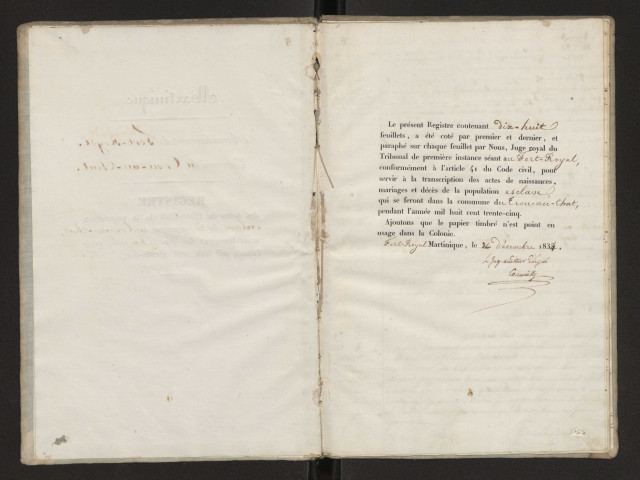 Le présent Registre contenant dix-huit
feuillets, a été coté par premier et dernier, et
paraphé sur chaque feuillet par Nous, Juge royal du
Tribunal de première instance séant au Fort-Royal,
conformément à l'article 41 du Code civil, pour
servir à la transcription des actes de naissances,
mariages et décès de la population esclave
qui se feront dans la commune du Trou-au-Chat,
pendant l'année mil huit cent trente-cinq.
Ajoutons que le papier timbré n'est point en
usage dans la Colonie.
Fort-Royal Martinique, le Décembre 1834.